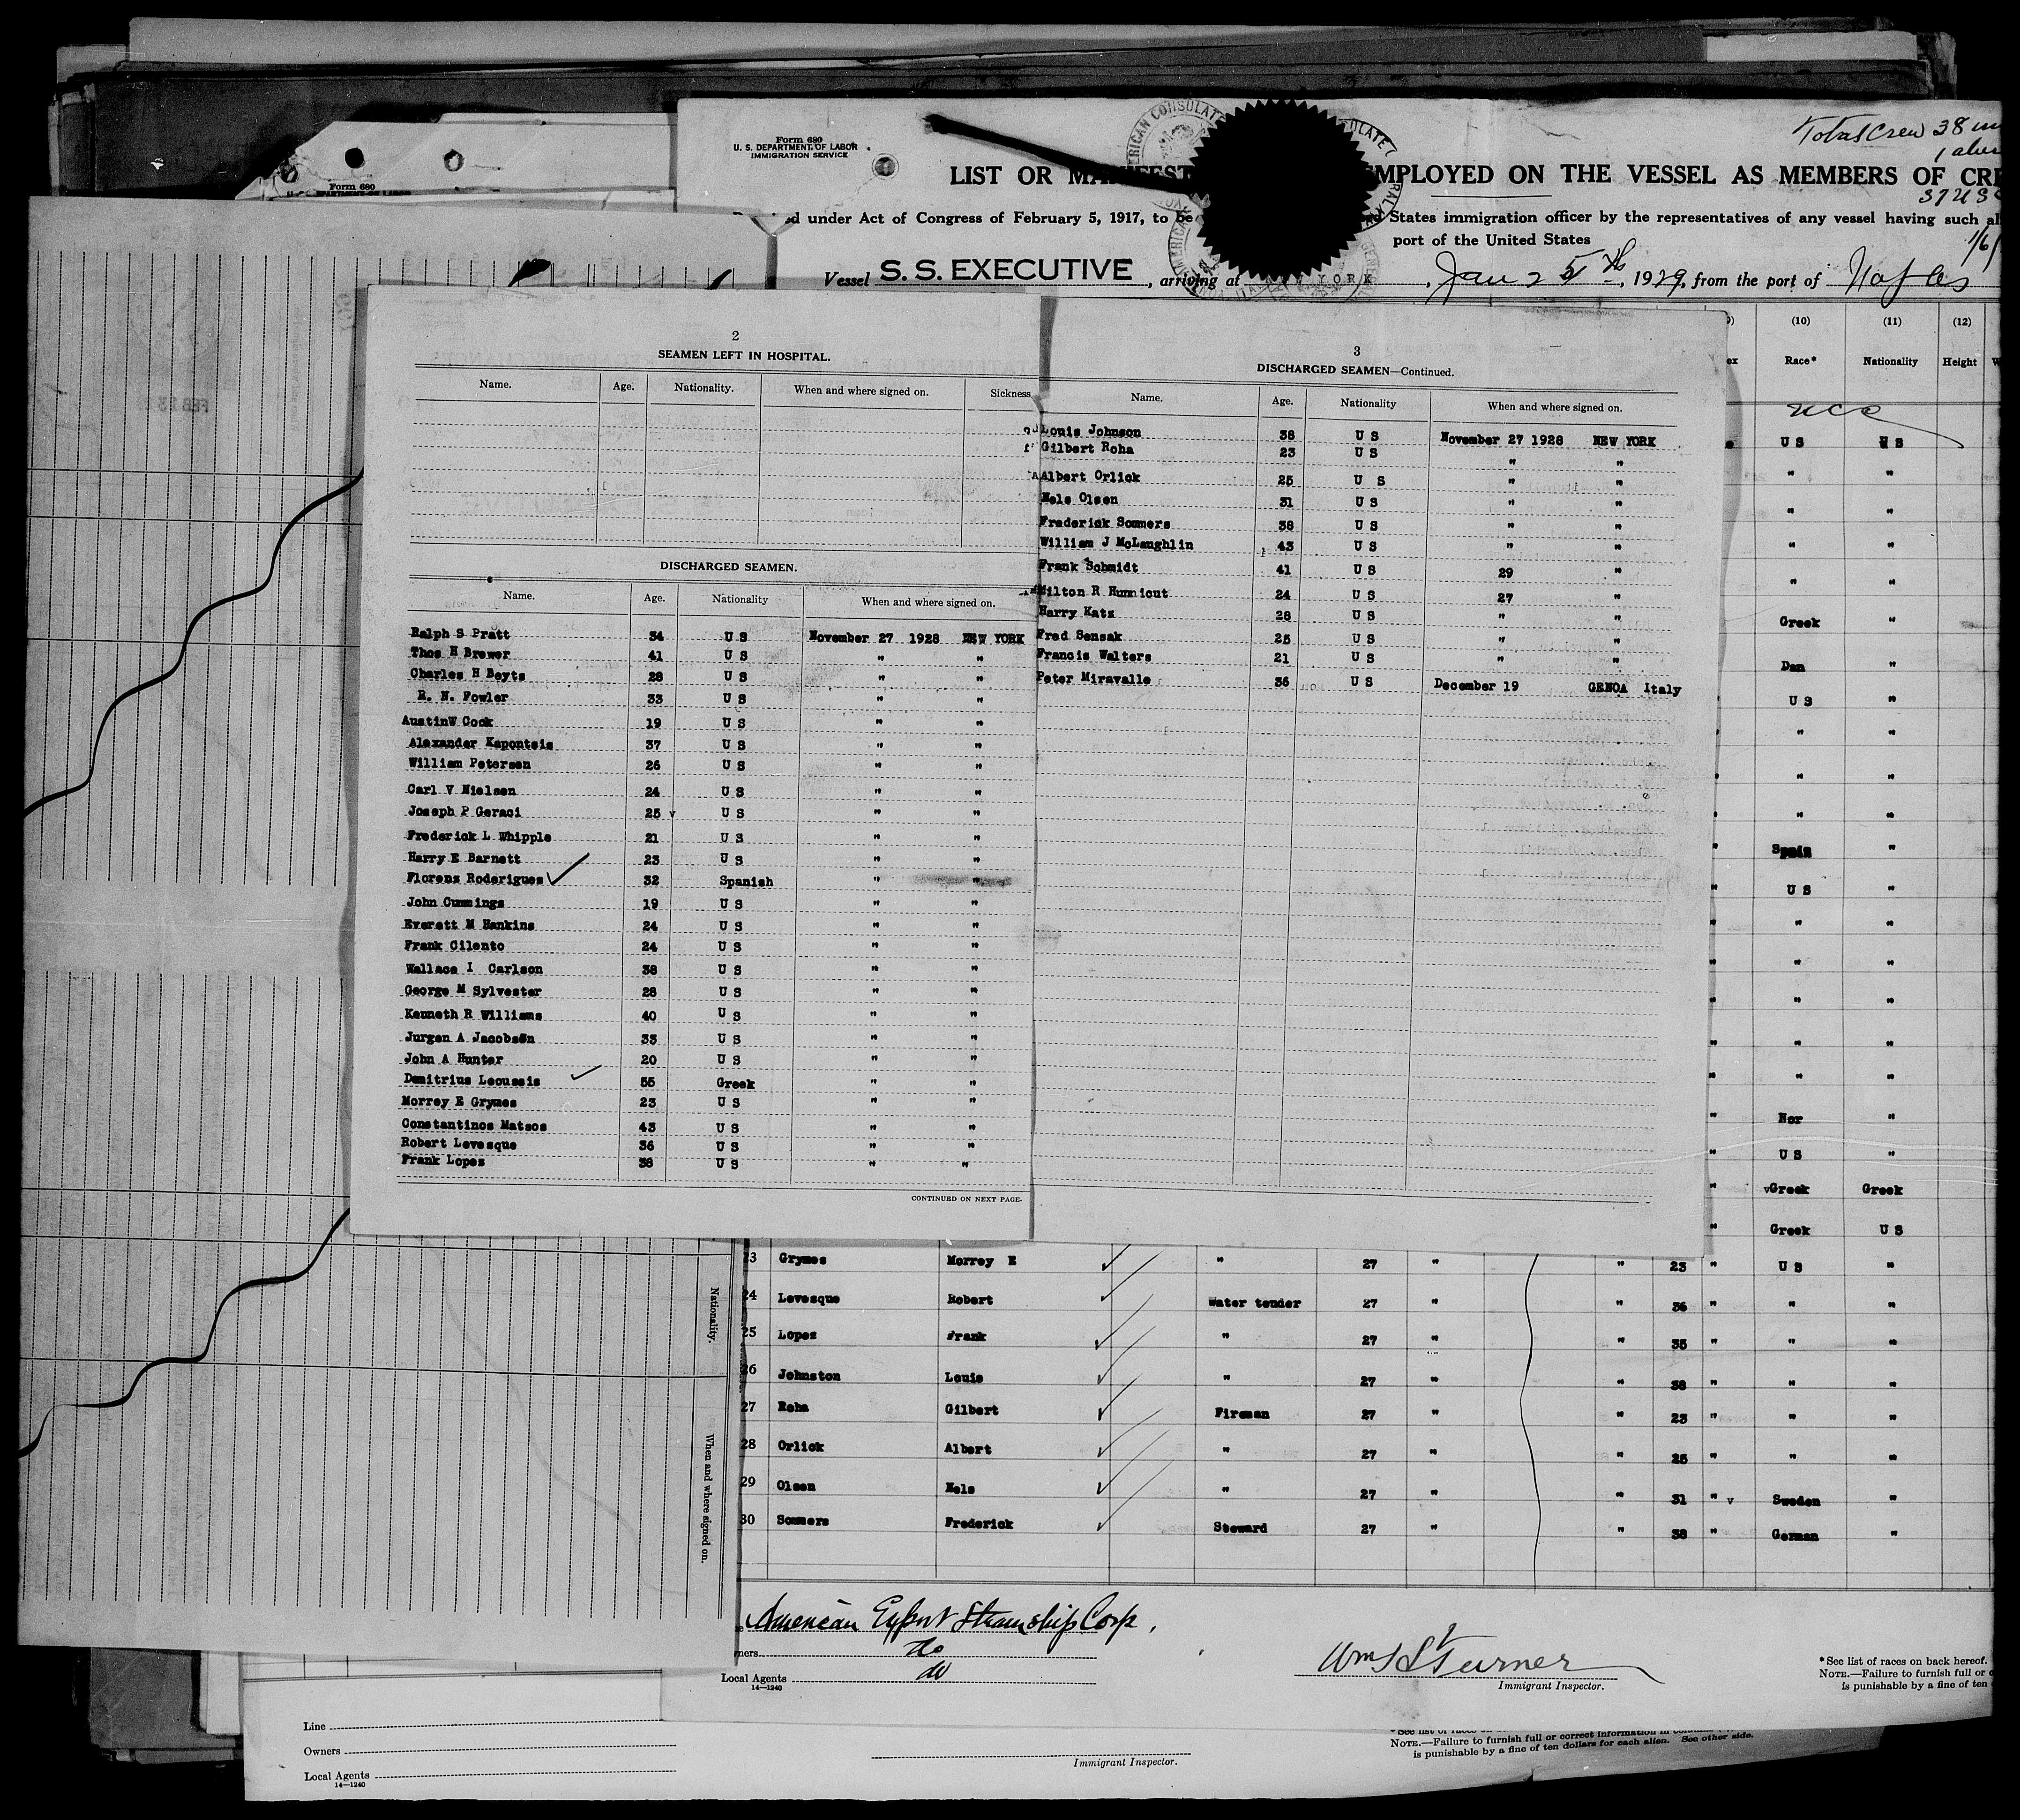 Form 680
U. S. DEPARTMENT OF LABOR
IMMIGRATION SERVICE
Form 680
Total Crew 38
LIST OR MPLOYED ON THE VESSEL AS MEMBERS OF CRE
37 US
ed under Act of Congress of February 5, 1917, to be ed States immigration officer by the representatives of any vessel having such al
port of the United States
Vessel S. S. EXECUTIVE, arriving at YORK, Jan 25th, 1929, from the port of Naples
(10) (11) (12)
Race* Nationality Height
2
SEAMEN LEFT IN HOSPITAL.
Name. Age. Nationality. When and where signed on. Sickness
DISCHARGED SEAMEN.
Name. Age. Nationality When and where signed on.
Ralph S Pratt 34 U S November 27 1928 NEW YORK
Thos H Brewer 41 U S " "
Charles H Beyts 28 U S " "
R. N. Fowler 33 U S " "
AustinW Cook 19 U S " "
Alexander Kapontsis 37 U S " "
William Petersen 26 U S " "
Carl V Nielsen 24 U S " "
Joseph P Geraci 25 v U S " "
Frederick L Whipple 21 U S " "
Harry E Barnett 23 U S " "
Florenz Roderigues 32 Spanish " "
John Cummings 19 U S " "
Everett M Hankins 24 U S " "
Frank Cilento 24 U S " "
Wallace I Carlson 38 U S " "
George M Sylvester 28 U S " "
Kenneth R Williams 40 U S " "
Jurgen A Jacobsen 33 U S " "
John A Hunter 20 U S " "
Demitrius Leoussis 55 Greek " "
Morrey E Grymes 23 U S " "
Constantinos Matsos 43 U S " "
Robert Levesque 36 U S " "
Frank Lopez 38 U S " "
CONTINUED ON NEXT PAGE.
3
DISCHARGED SEAMEN—Continued.
Name. Age. Nationality When and where signed on.
Louis Johnson 38 U S November 27 1928 NEW YORK
Gilbert Roha 23 U S " "
Albert Orlick 25 U S " "
Nels Olsen 31 U S " "
Frederick Sommers 38 U S " "
William J McLaughlin 43 U S " "
Frank Schmidt 41 U S 29 "
Milton R Hunnicut 24 U S 27 "
Harry Katz 28 U S " "
Fred Sensak 25 U S " "
Francis Walters 21 U S " "
Peter Miravalle 36 U S December 19 GENOA Italy
U S U S
" "
" "
" "
" "
Greek "
Dan "
U S "
" "
" "
" "
Spain "
U S "
" "
" "
" "
" "
" "
Nor "
U S "
Greek Greek
Greek U S
23 Grymes Morrey E " 27 " " 23 " U S "
24 Levesque Robert Water tender 27 " " 36 " " "
25 Lopez Frank " 27 " " 35 " " "
26 Johnston Louis " 27 " " 38 " " "
27 Roha Gilbert Fireman 27 " " 23 " " "
28 Orlick Albert " 27 " " 25 " " "
29 Olsen Nels " 27 " " 31 " v Sweden "
30 Sommers Frederick Steward 27 " " 38 " German "
Nationality.
When and where signed on.
American Export Steamship Corp.
ners do
Local Agents do
14—1240
Wm S Turner
Immigrant Inspector.
*See list of races on back hereof.
NOTE.—Failure to furnish full or
is punishable by a fine of ten
Line
Owners
Local Agents
14—1240
Immigrant Inspector.
NOTE.—Failure to furnish full or correct information in
is punishable by a fine of ten dollars for each alien. See other side.